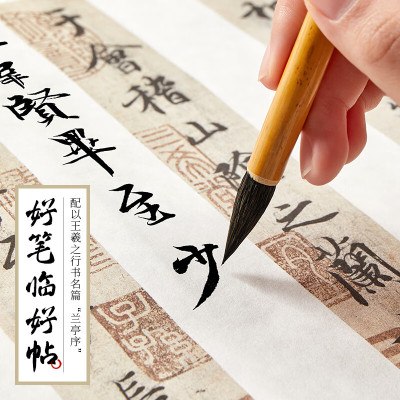 于會稽山陰之蘭
羣賢畢至少
配以王羲之行书名篇“兰亭序”
好笔临好帖